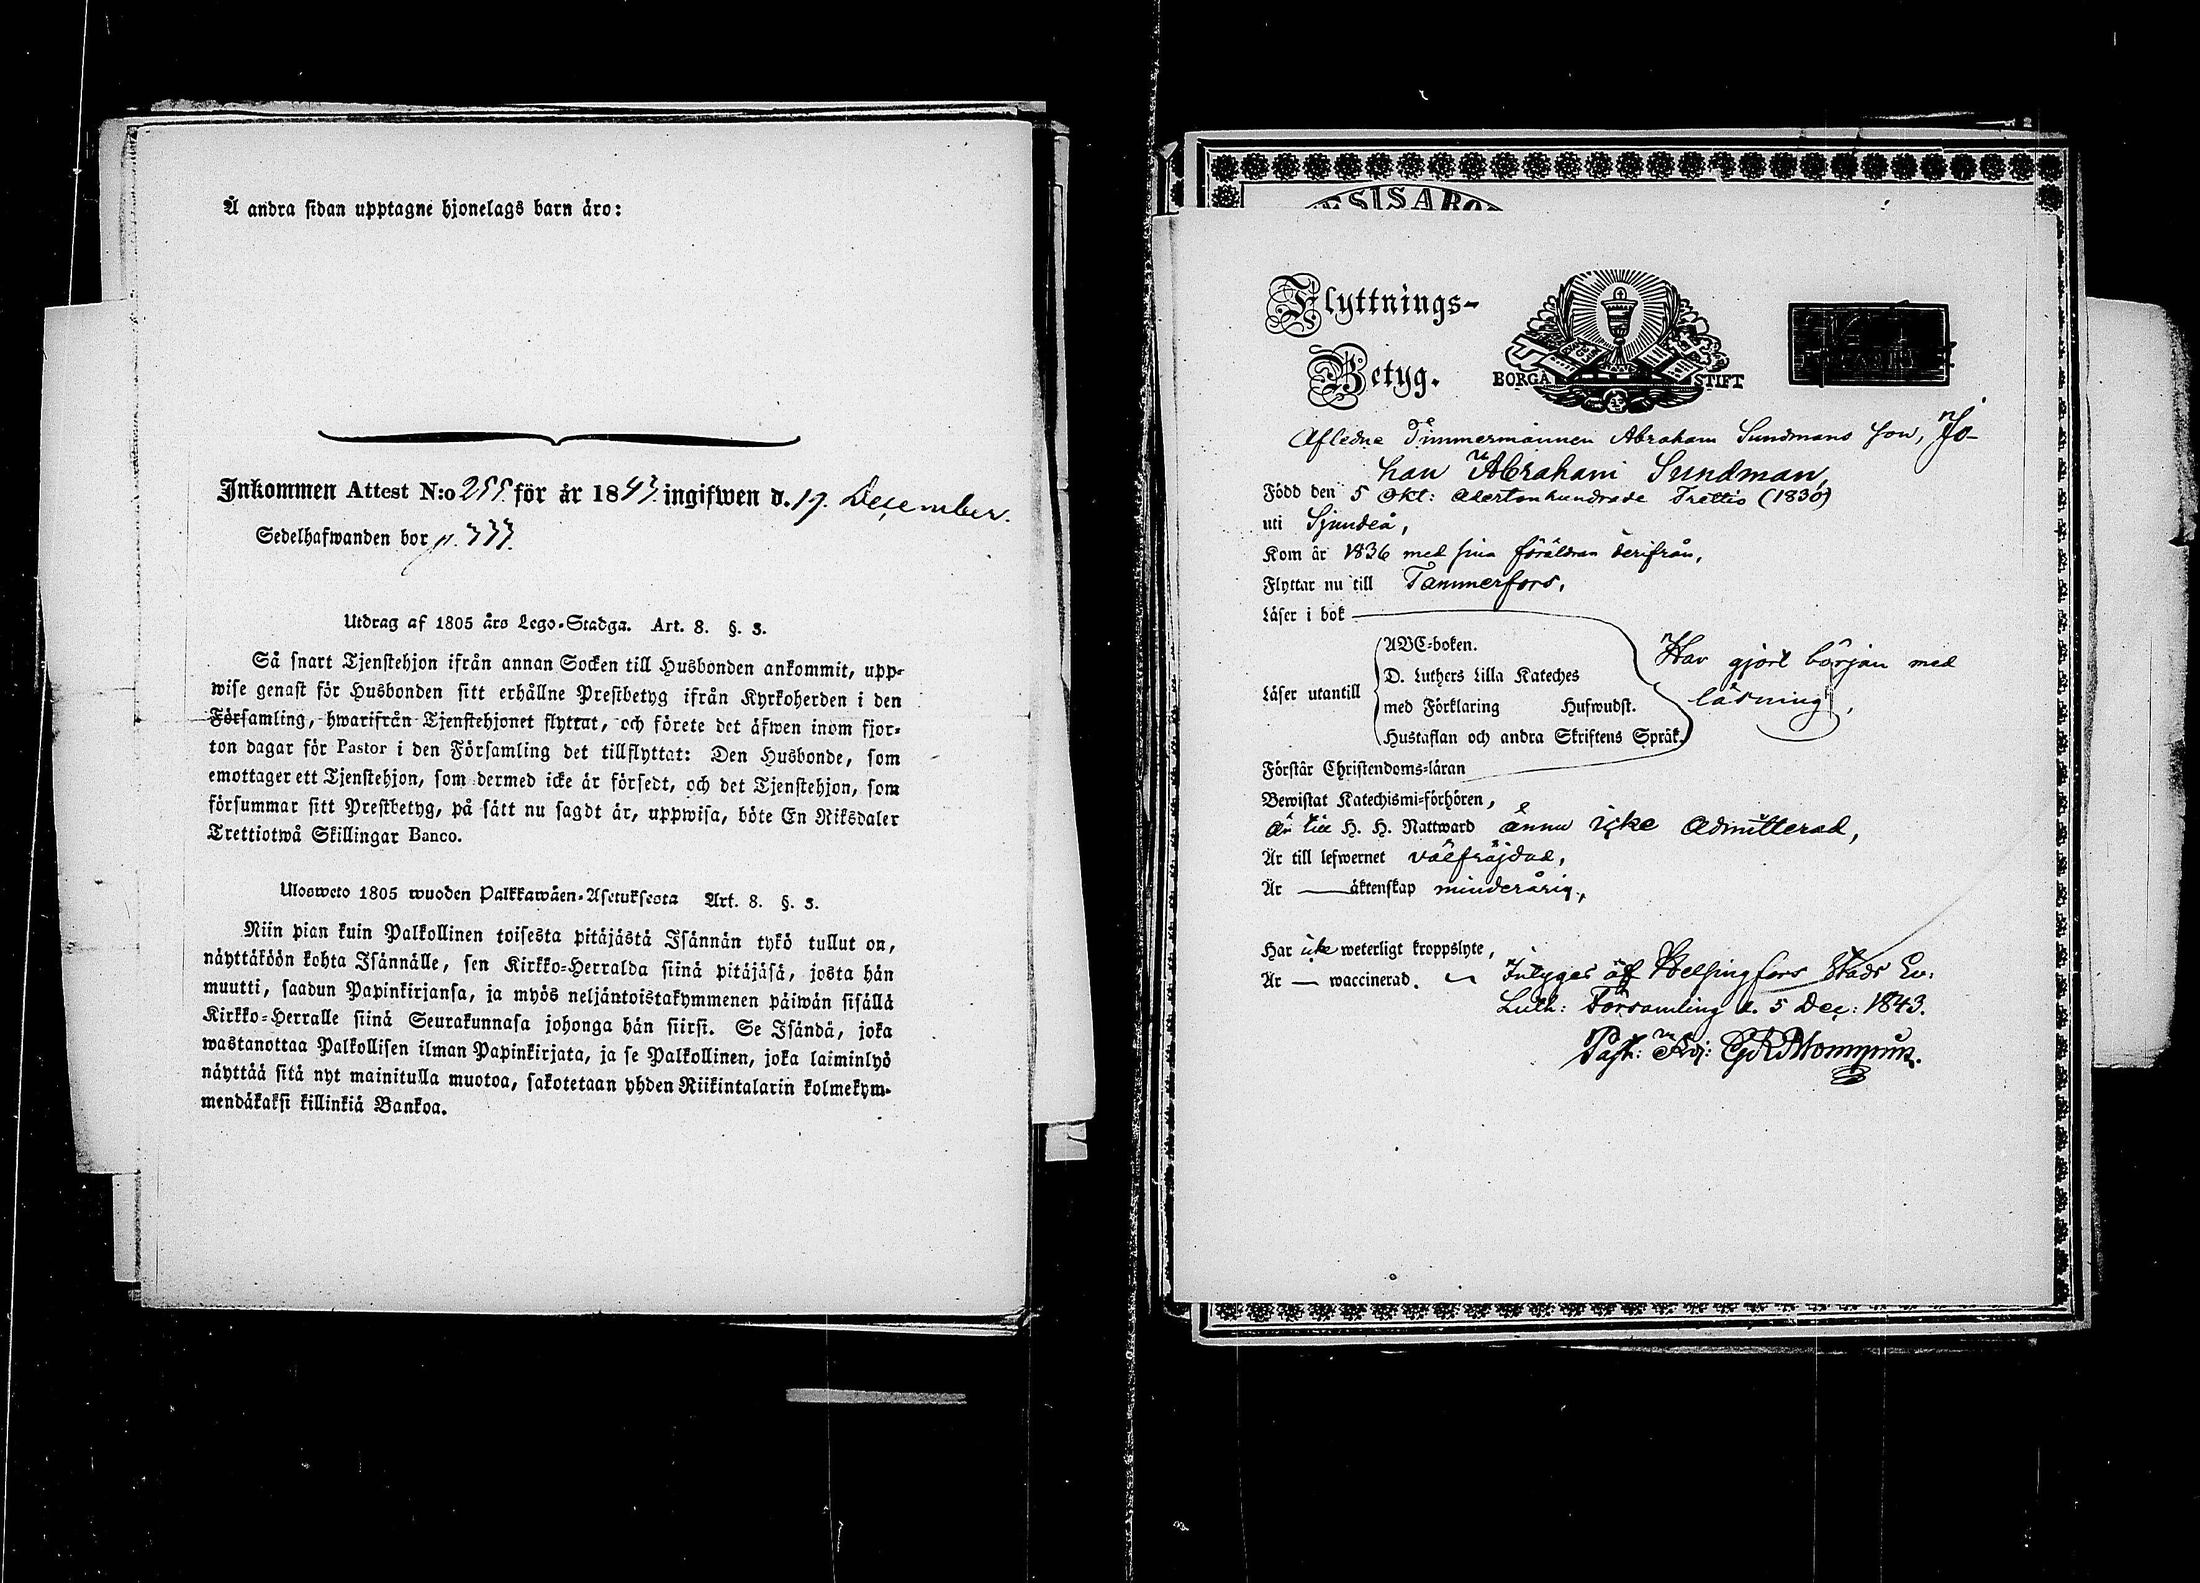 Å andra sidan upptagne hjonelags barn äro:
Inkommen Attest N:o 255. för år 1843. ingifwen d. 19. December.
Sedelhafwanden bor p. 333.
Utdrag af 1805 års Lego-Stadga. Art. 8. §. 3.
Så snart Tjenstehjon ifrån annan Socken till Husbonden ankommit, upp-
wise genast för Husbonden sitt erhållne Prestbetyg ifrån Kyrkoherden i den
Församling, hwarifrån Tjenstehjonet flyttat, och förete det äfwen inom fjor-
ton dagar för Pastor i den Församling det tillflyttat: Den Husbonde, som
emottager ett Tjenstehjon, som dermed icke är försedt, och det Tjenstehjon, som
försummar sitt Prestbetyg, på sätt nu sagdt är, uppwisa, böte En Riksdaler
Trettiotwå Skillingar Banco.
Ulosweto 1805 wuoden Palkkawäen-Asetuksesta Art. 8. §. 3.
Niin pian kuin Palkollinen toisesta pitäjästä Isännän tykö tullut on,
näyttäköön kohta Isännälle, sen Kirkko-Herralda siinä pitäjäsä, josta hän
muutti, saadun Papinkirjansa, ja myös neljäntoistakymmenen päiwän sisällä
Kirkko-Herralle siinä Seurakunnasa johonga hän siirsi. Se Isändä, joka
wastanottaa Palkollisen ilman Papinkirjata, ja se Palkollinen, joka laiminlyö
näyttää sitä nyt mainitulla muotoa, sakotetaan yhden Riikintalarin kolmekym-
mendäkaksi killinkiä Bankoa.
Flyttnings-
Betyg.
BORGÅ STIFT
Afledne Timmermannen Abraham Sundmans son, Jo-
han Abraham Sundman,
Född den 5 Okt: Adertonhundrade Trettio (1830)
uti Sjundeå,
Kom år 1836 med sina föräldrar derifrån,
Flyttar nu till Tammerfors.
Läser i bok
ABC-boken.
Läser utantill
D. Luthers Lilla Kateches
med Förklaring Hufwudst.
Hustaflan och andra Skriftens Språk.
Har gjort början med
läsning,
Förstår Christendoms-läran
Bewistat Katechismi-förhören,
Är till H. H. Nattward ännu icke admitterad,
Är till lefwernet välfräjdad,
Är äktenskap minderårig,
Har icke weterligt kroppslyte,
Är waccinerad.
Intygas af Helsingfors Stads Ev:
Luth: Församling d. 5 Dec: 1843.
Past: Adj: